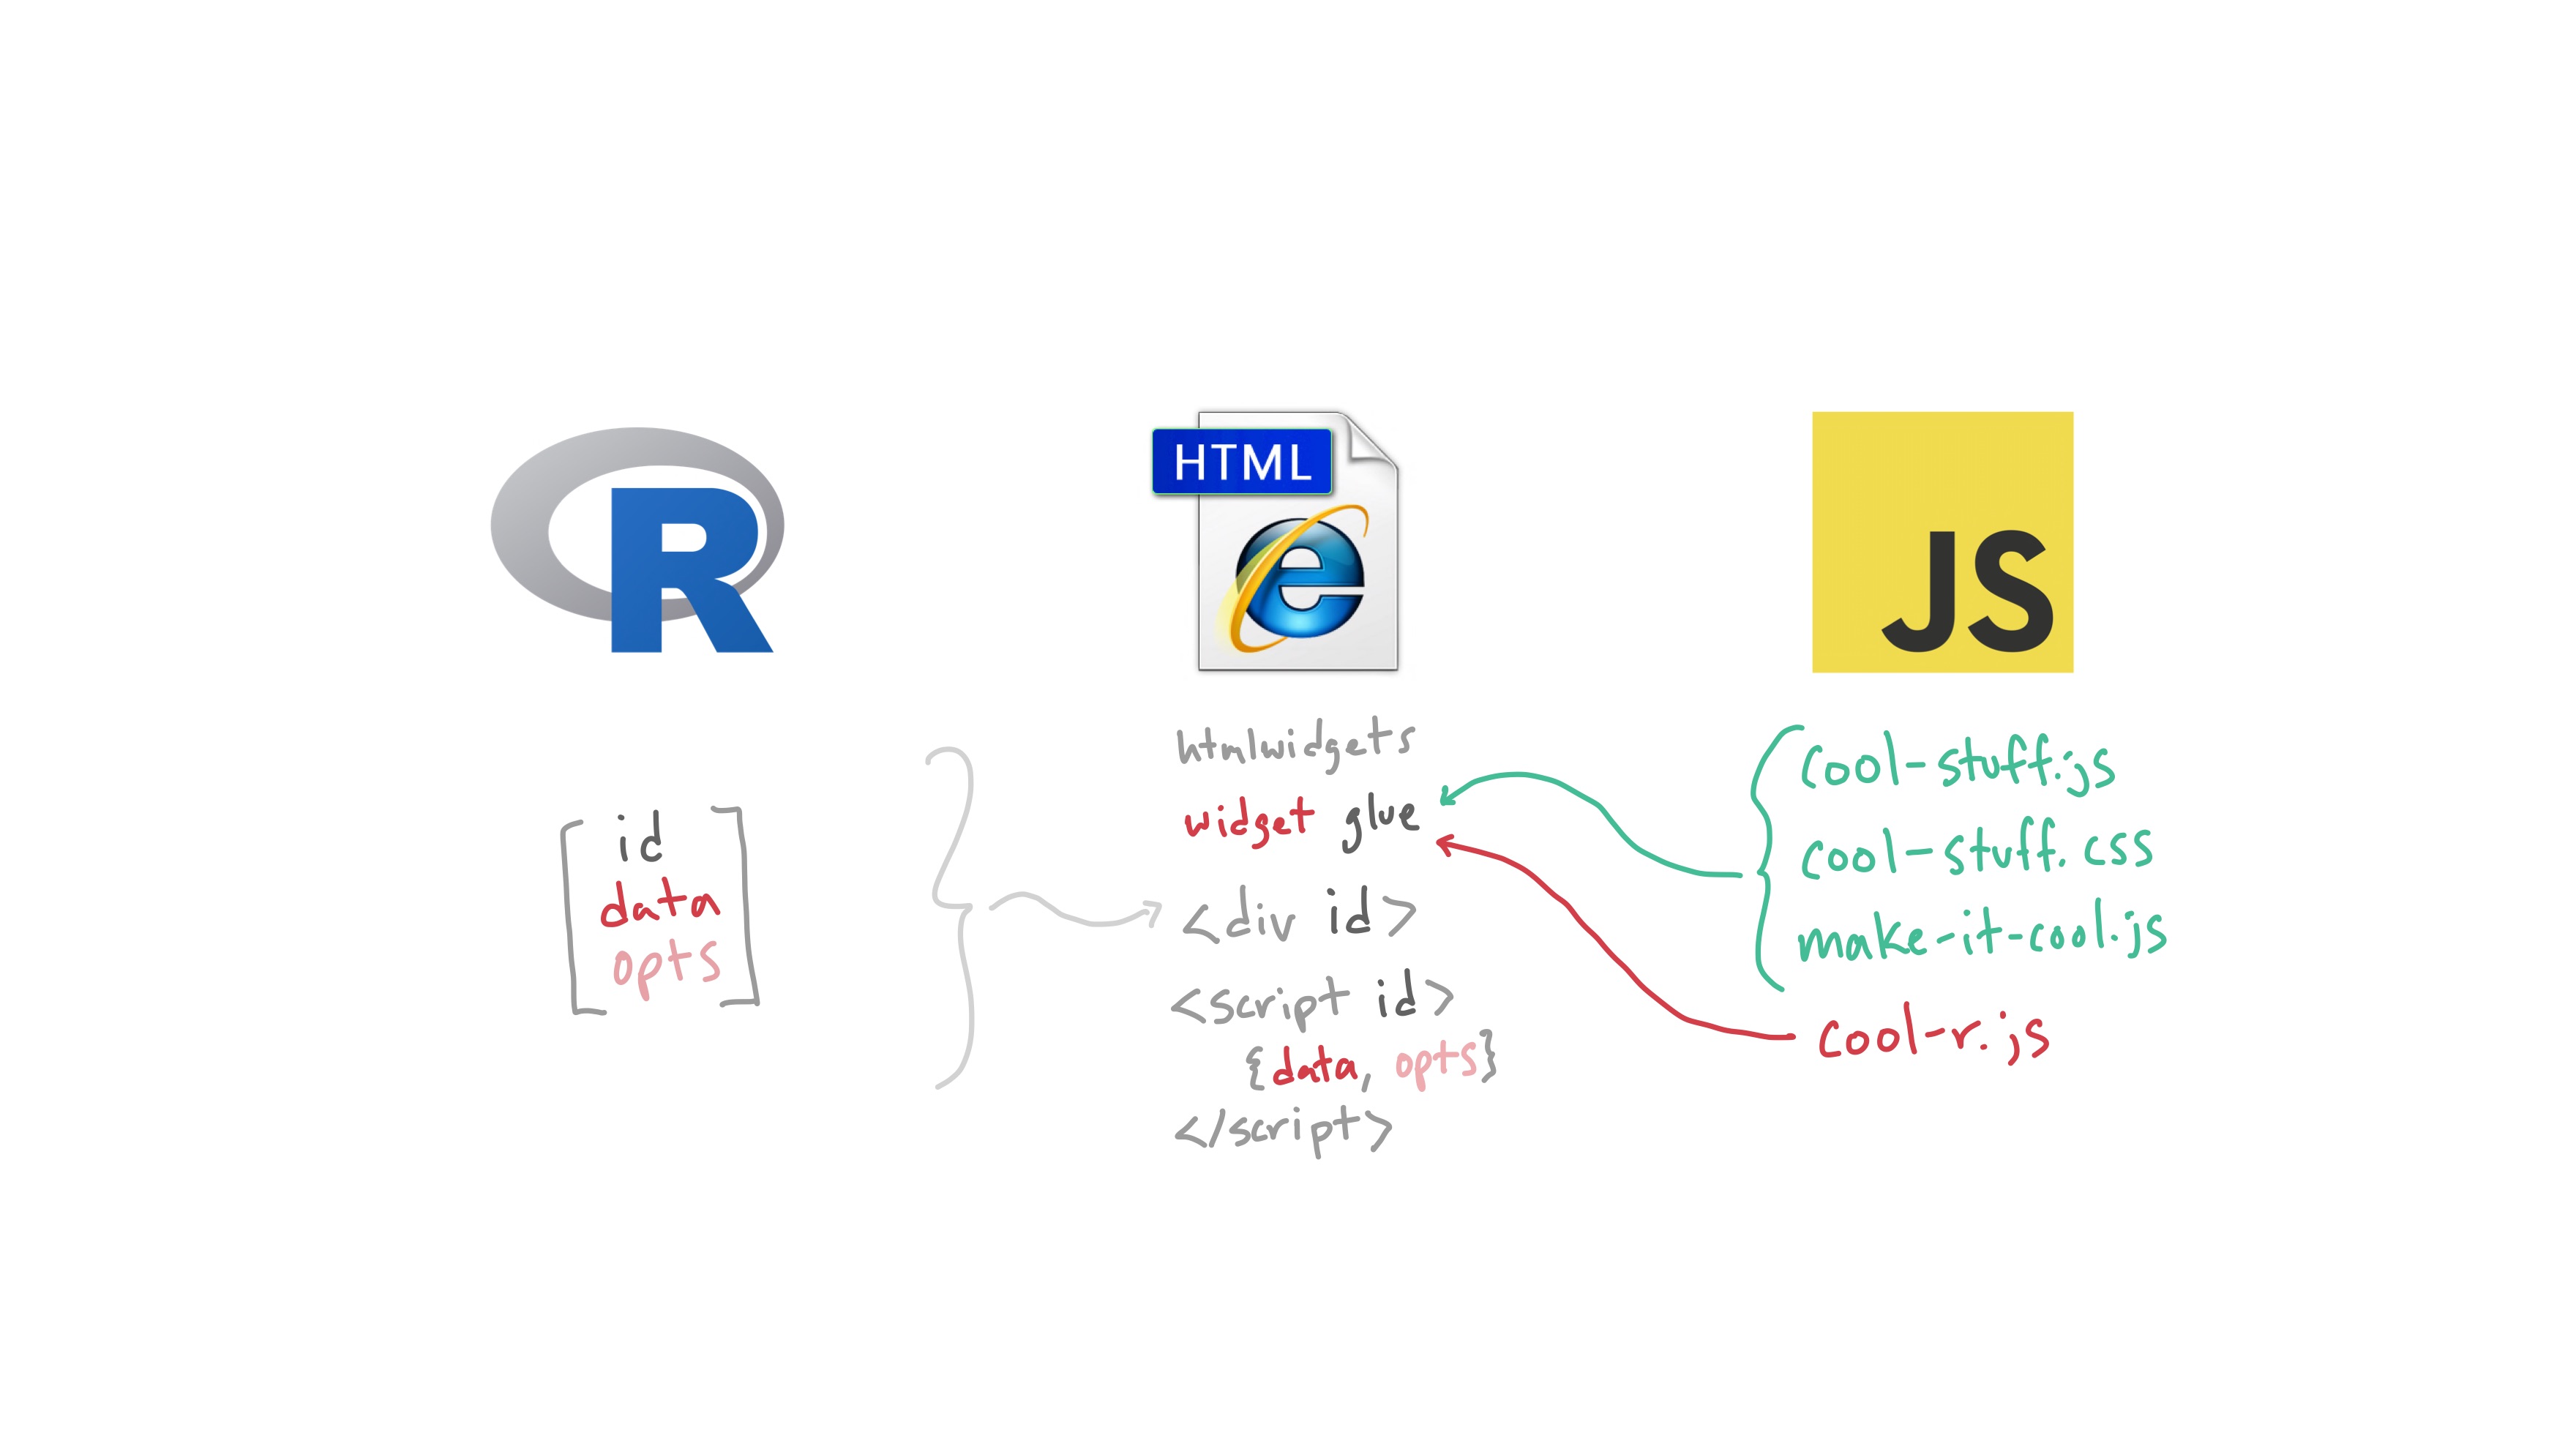 R
HTML
e
JS
id
data
opts
htmlwidgets
widget glue
<div id>
<script id>
{data, opts}
</script>
cool-stuff.js
cool-stuff.css
make-it-cool.js
cool-r.js